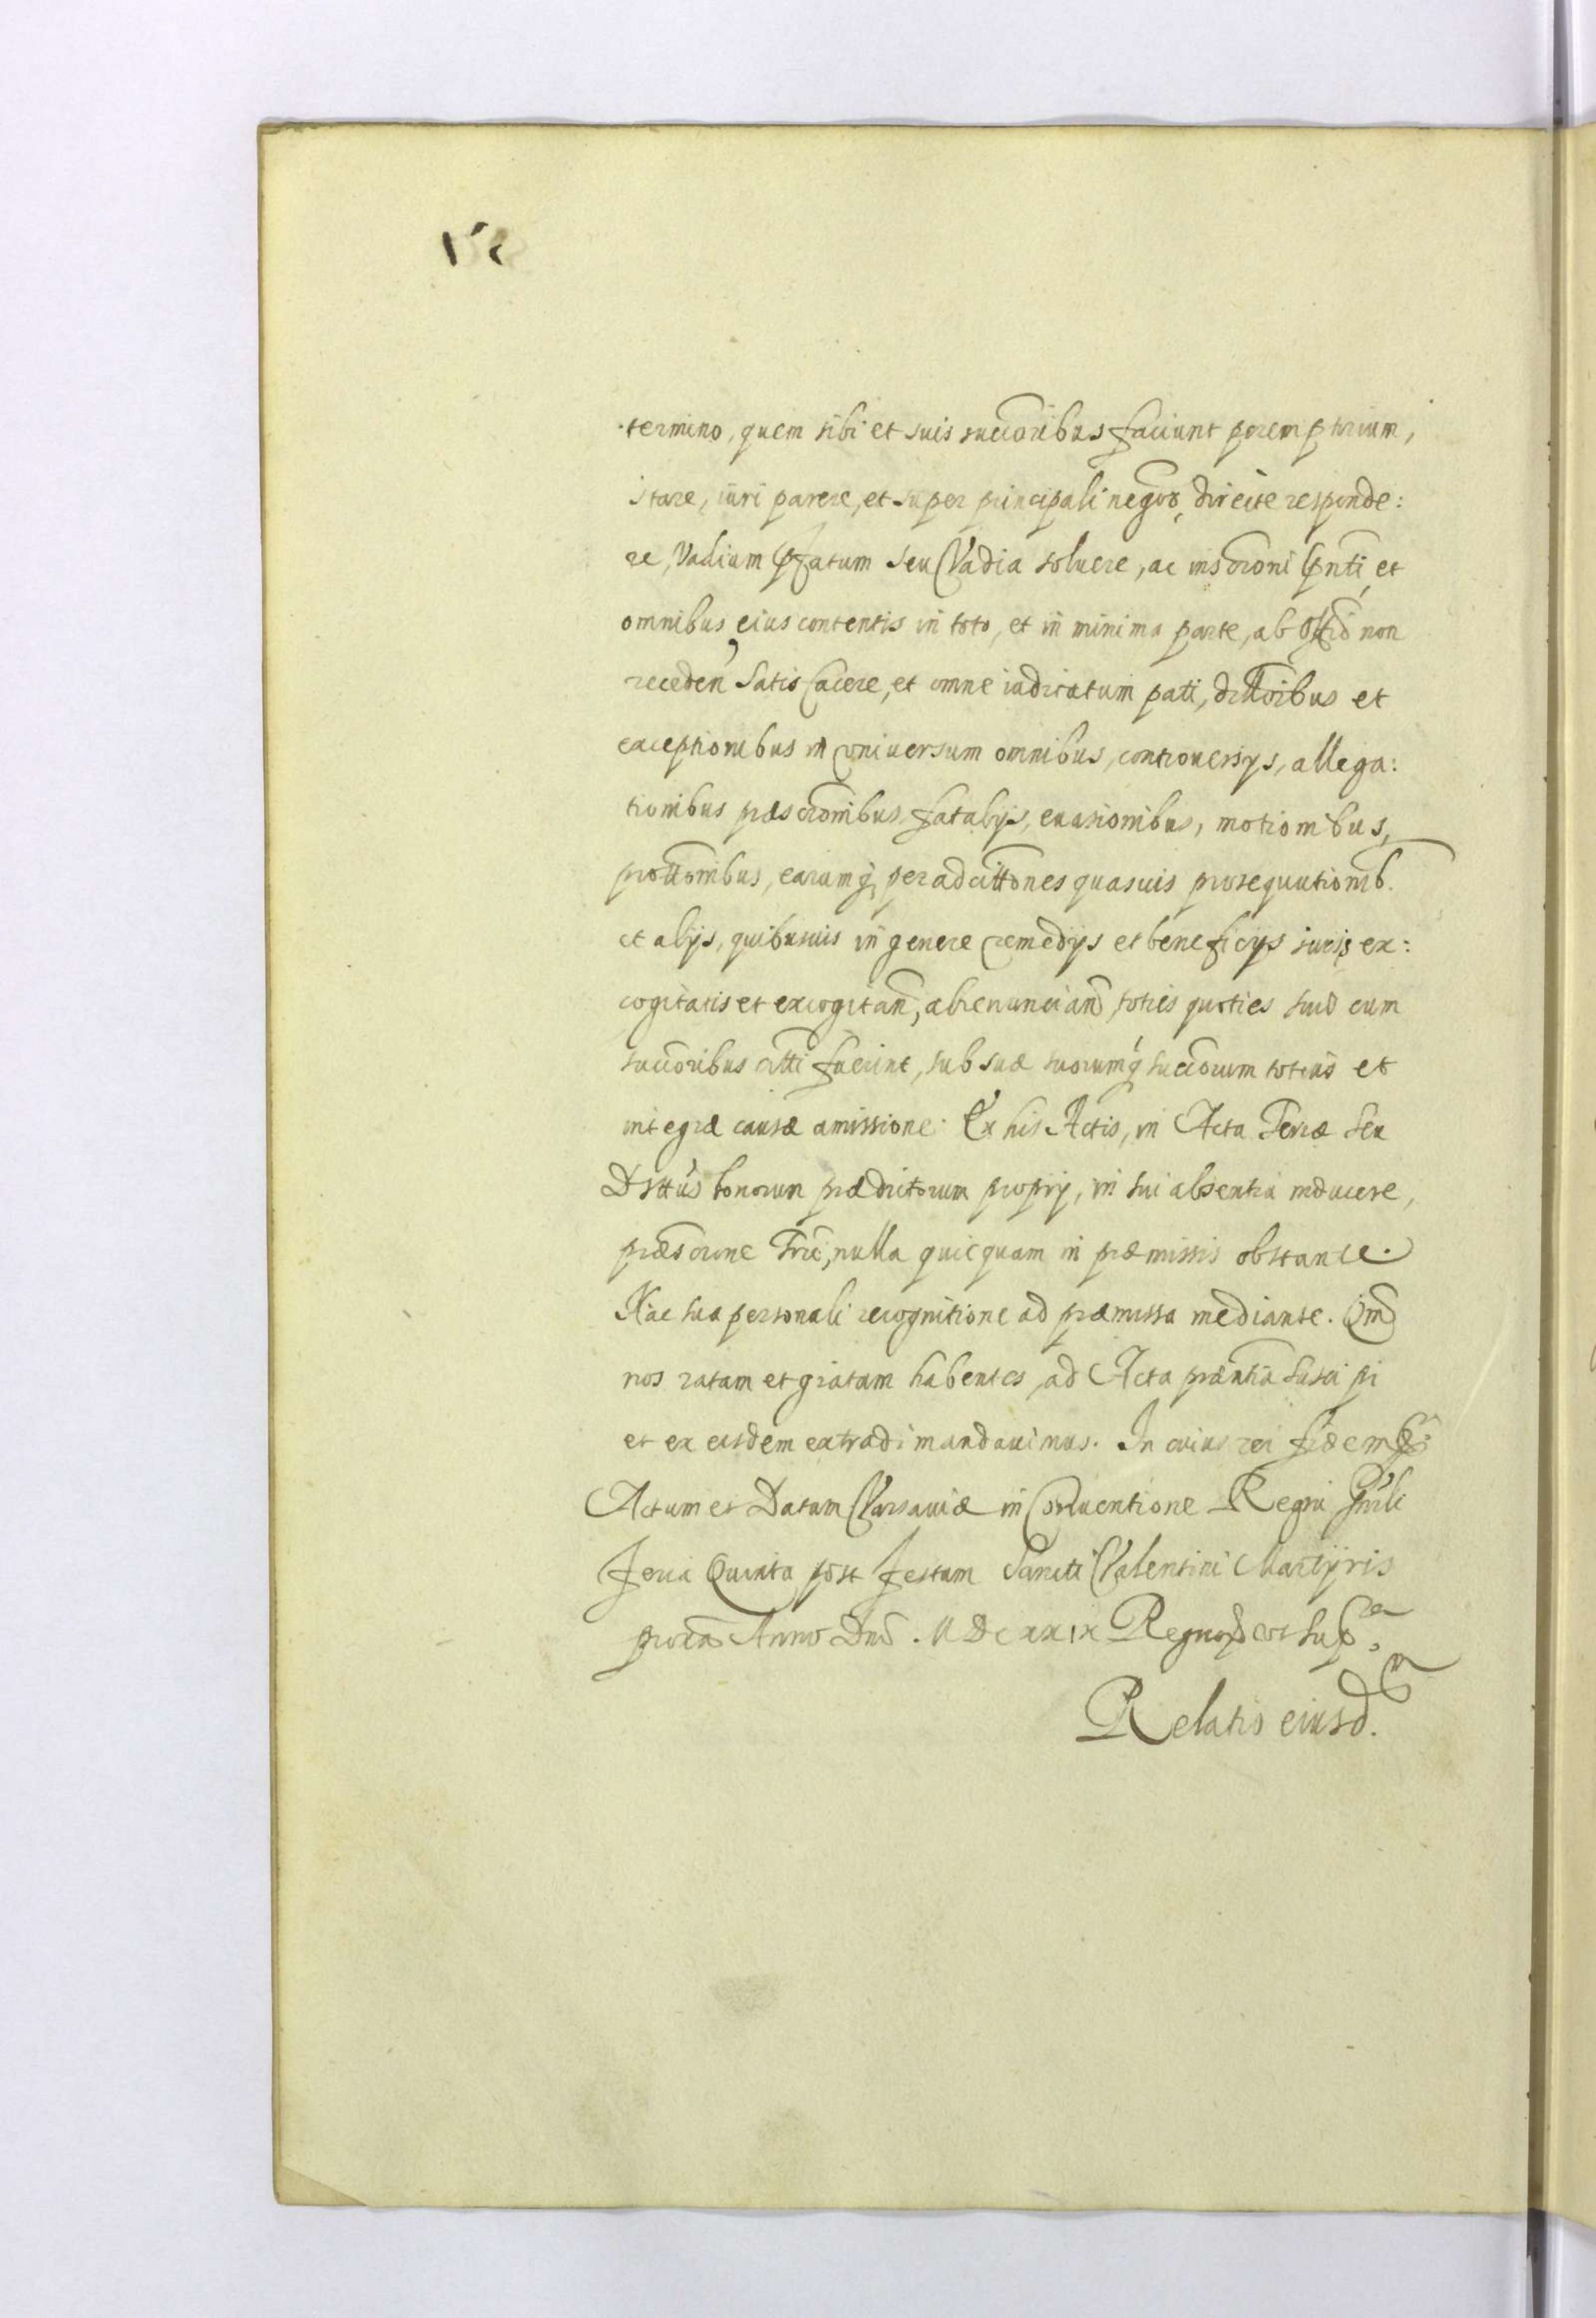 termino, quem sibi et suis succoribus faciunt peremptorium,
stare, iuri parere, et super principali negoo, directe responde:
re, Vadium pfatum seu Vadia soluere, ac inscrioni pnti et
omnibus eius contentis in toto, et in minima parte, ab non
receden Satisfacere, et omne iudicatum pati, dilloibus et
exceptionibus in vniuersum omnibus, controuersys, allega:
tionibus præscrionibus, fatalijs, euasionibus, motionibus,
prottonibus, earumq, per ad cittones quasuis prosequutionib.
et alijs, quibusuis in genere remedijs et beneficijs iuris ex:
cogitatis et excogitan, abrenuncian toties quoties cum
succoribus citti fuerint, sub suæ suorumq succorum totius et
integræ causæ amissione. Ex his Actis, in Acta Terræ seu
Dsttus bonorum prædictorum proprij, in sui absentia inducere,
præscrione Trri, nulla quicquam in præmissis obstante.
Hac sua personali recognitione ad præmissa mediante. Qm
nos ratam et gratam habentes, ad Acta præntia susci pi
et ex eisdem extradi mandauimus. In cuius rei fidem &
Actum et Datum Varsauiæ in Conuentione Regni Gnrli
Feria Quinta post festum Sancti Valentini Martyris
proxa Anno Dni. MDcxxix Regnorq vt sup.
Relatio eiusd.